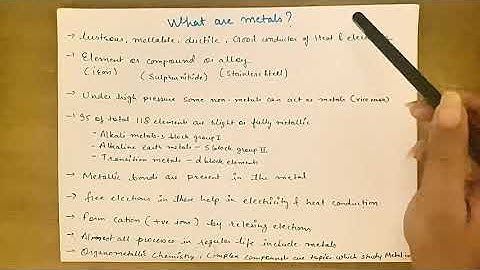 What are metals?
→ lustrous, mallable, ductile, Good conductor of Heat &
→ Element or compound or alloy
(iron) (Sulphurnitride) (Stainless steel)
→ Under high pressure some non-metals can act as metals (vice versa)
→ 95 of total 118 elements are slight or fully metallic
- Alkali metals - s block group I
- Alkaline earth metals - S block group II
- Transition metals - d block elements
→ Metallic bonds are present in the metal
→ free electrons in there help in electricity & heat conduction
→ form cation (+ve ions) by relesing electrons
→ Almost all processes in regular life include metals
→ Organometallic Chemistry, Complex compounds are topics which study Metal